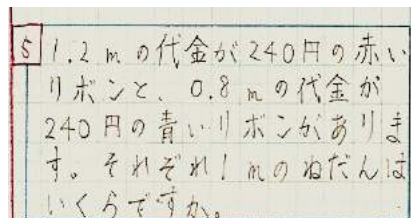 5 1.2mの代金が240円の赤い
リボンと、0.8mの代金が
240円の青いリボンがありま
す。それぞれ1mのねだんは
いくらですか。